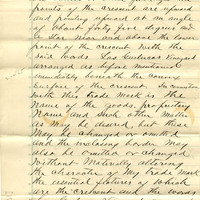 points of the crescent are upward
and pointing upward at an angle
of about forty five degrees and
a star near and above the lower
point of the crescent with the
said words Las Cubanas
arranged as before mentioned
immediately beneath the convex
surface of the crescent. In connection
with this trade mark is the
name of the goods, proprietary
name and such other matter
as may be desired, but these
may be changed or omitted
and the inclosing border may
also be omitted or changed
without materially altering
the character of my trade mark
the essential features of which
are the crescent and the words